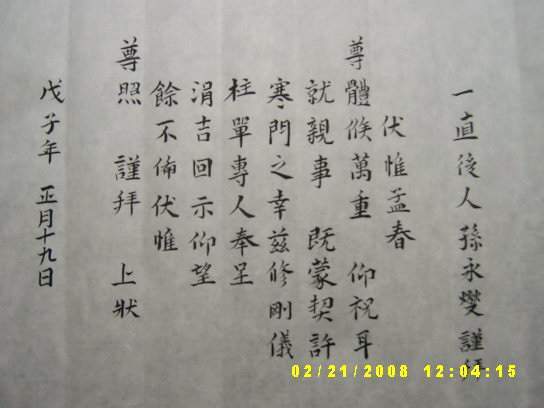 一直後人孫永燮謹拜
伏惟孟春
尊體候萬重 仰祝耳
就親事 旣蒙契許
寒門之幸玆修剛儀
柱單專人奉呈
涓吉回示仰望
餘不備伏惟
尊照 謹拜 上狀
戊子年 正月十九日
02/21/2008 12:04:15